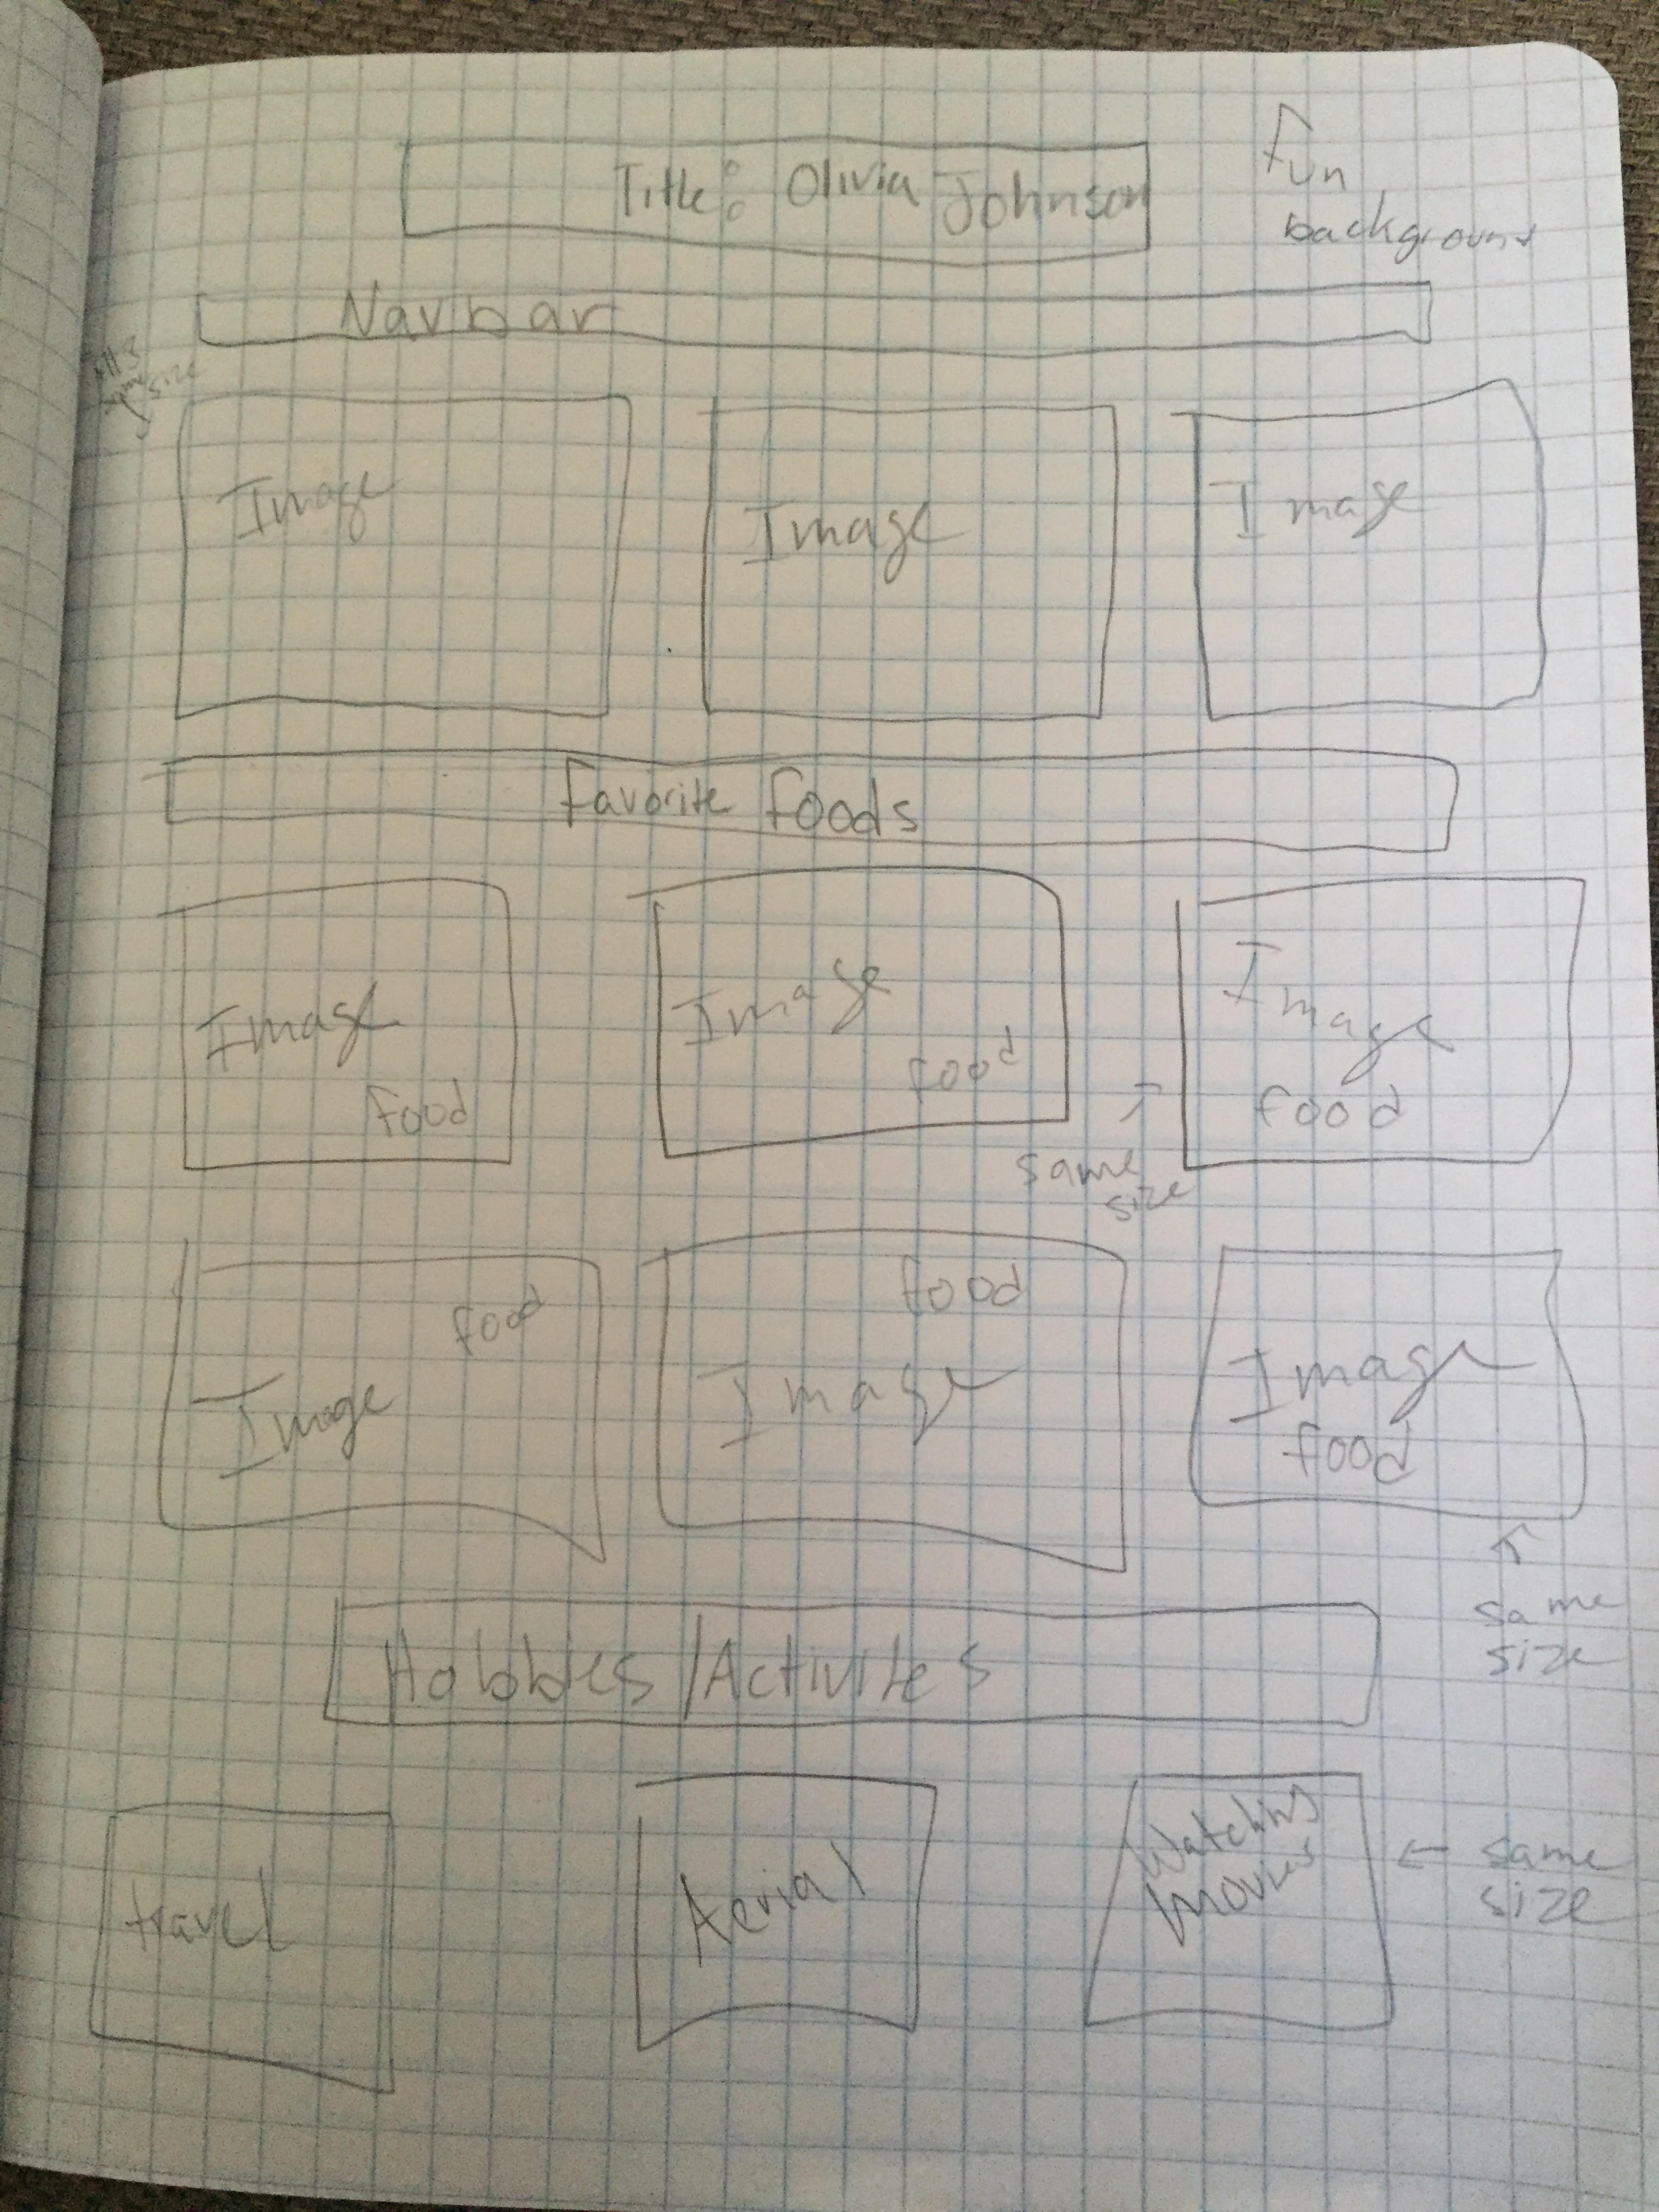 Title: Olivia Johnson
fun
background
Navbar
All 3
same size
Image
Image
Image
favorite foods
Image
food
Image
food
Image
food
same
size
food
Image
food
Image
Image
food
same
size
Hobbies/Activites
travel
Aerial
Watching
movies
same
size